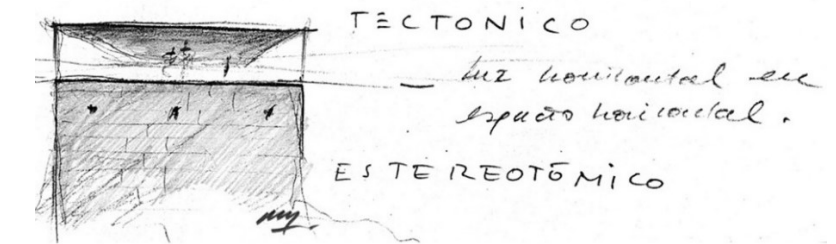 TECTONICO
— luz horizontal en
espacio horizontal.
ESTEREOTÓMICO